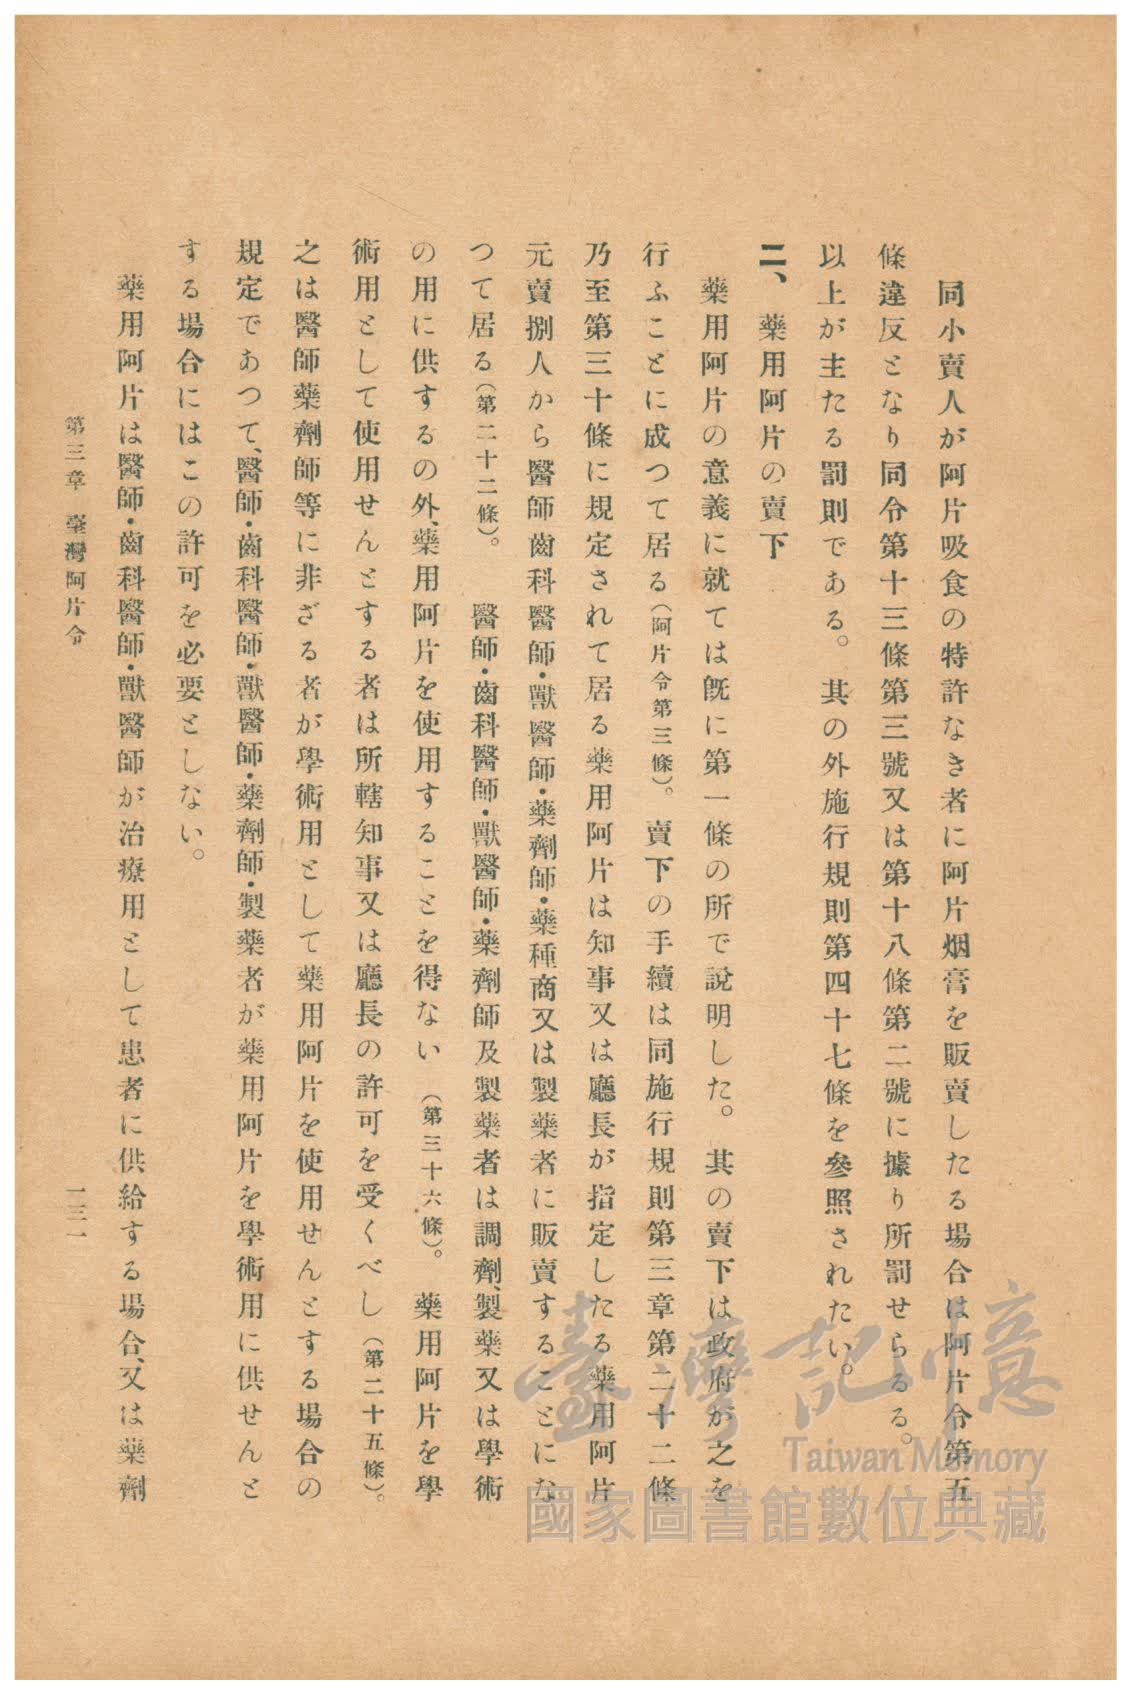 同小賣人が阿片吸食の特許なき者に阿片烟膏を販賣したる場合は阿片令第五
條違反となり同令第十三條第三號又は第十八條第二號に據り所罰せらるる。
以上が主たる罰則である。其の外施行規則第四十七條を參照されたい。
二、藥用阿片の賣下
藥用阿片の意義に就ては旣に第一條の所で說明した。其の賣下は政府が之を
行ふことに成つて居る(阿片令第三條)。賣下の手續は同施行規則第三章第二十二條
乃至第三十條に規定されて居る藥用阿片は知事又は廳長が指定したる藥用阿片
元賣捌人から醫師齒科醫師・獸醫師・藥劑師・藥種商又は製藥者に販賣することにな
つて居る(第二十二條)。醫師・齒科醫師・獸醫師・藥劑師及製藥者は調劑、製藥又は學術
の用に供するの外、藥用阿片を使用することを得ない(第三十六條)。藥用阿片を學
術用として使用せんとする者は所轄知事又は廳長の許可を受くべし(第二十五條)。
之は醫師藥劑師等に非ざる者が學術用として藥用阿片を使用せんとする場合の
規定であつて、醫師・齒科醫師・獸醫師・藥劑師・製藥者が藥用阿片を學術用に供せんと
する場合にはこの許可を必要としない。
藥用阿片は醫師・齒科醫師・獸醫師が治療用として患者に供給する場合、又は藥劑
第三章 臺灣阿片令
一三一
臺灣記憶
Taiwan Memory
國家圖書館數位典藏